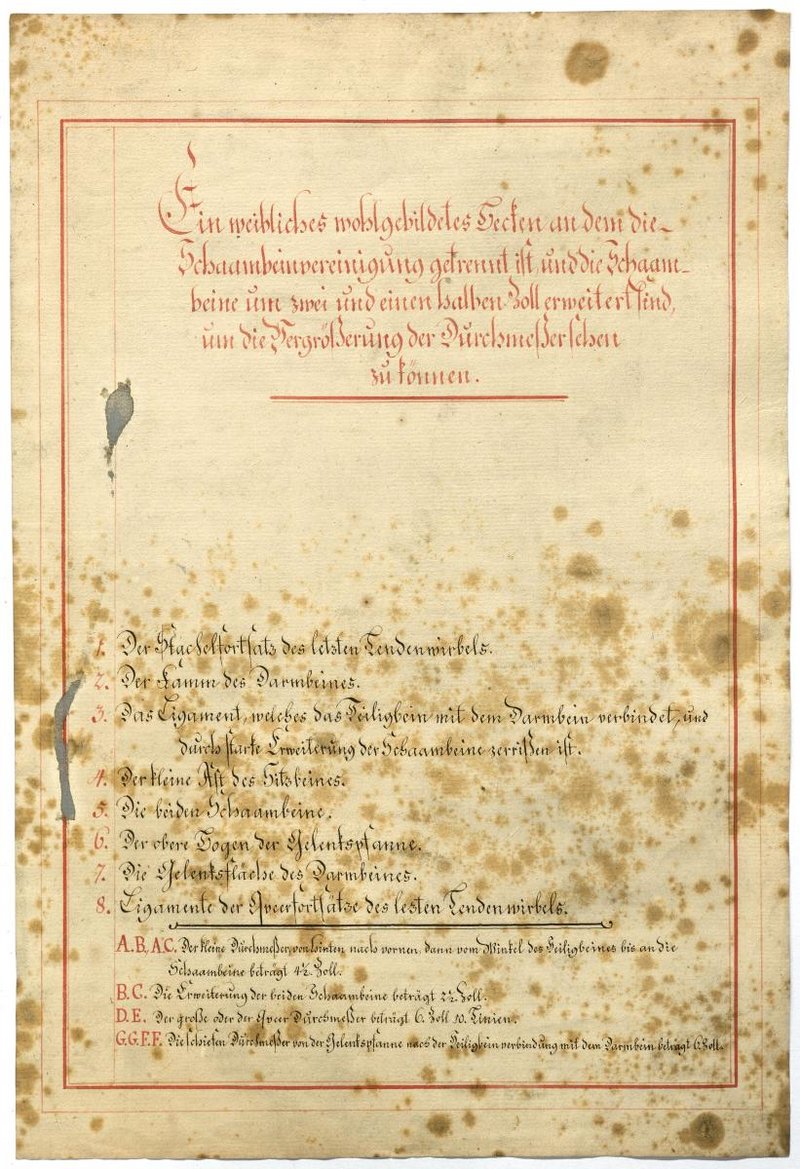 Ein weibliches wohlgebildetes Becken an dem die
Schaambeinvereinigung getrennt ist, und die Schaam-
beine um zwei und einen halben Zoll erweitert sind,
um die Vergrößerung der Durchmeßer sehen
zu können.
1. Der Stachelfortsatz des letzten Lendenwirbels.
2. Der Kamm des Darmbeines.
3. Das Ligament, welches das Heiligbein mit dem Darmbein verbindet, und
durch starke Erweiterung der Schaambeine zerrißen ist.
4. Der kleine Ast des Sitzbeines.
5. Die beiden Schaambeine.
6. Der obere Bogen der Gelenkspfanne.
7. Die Gelenksfläche des Darmbeines.
8. Ligamente der Queerfortsätze des lesten Lendenwirbels.
A.B, A.C. Der kleine Durchmeßer, von hinten nach vornen, dann vom Winkel des Heiligbeines bis an die
Schaambeine beträgt 4½ Zoll.
B.C. Die Erweiterung der beiden Schaambeine beträgt 2½ Zoll.
D.E. Der große oder der Queer Durchmeßer beträgt 6. Zoll 10. Linien.
G.G.F.F. Die schiefen Durchmeßer von der Gelenkspfanne nach der Heiligbeinverbindung mit dem Darmbein beträgt 6. Zoll.